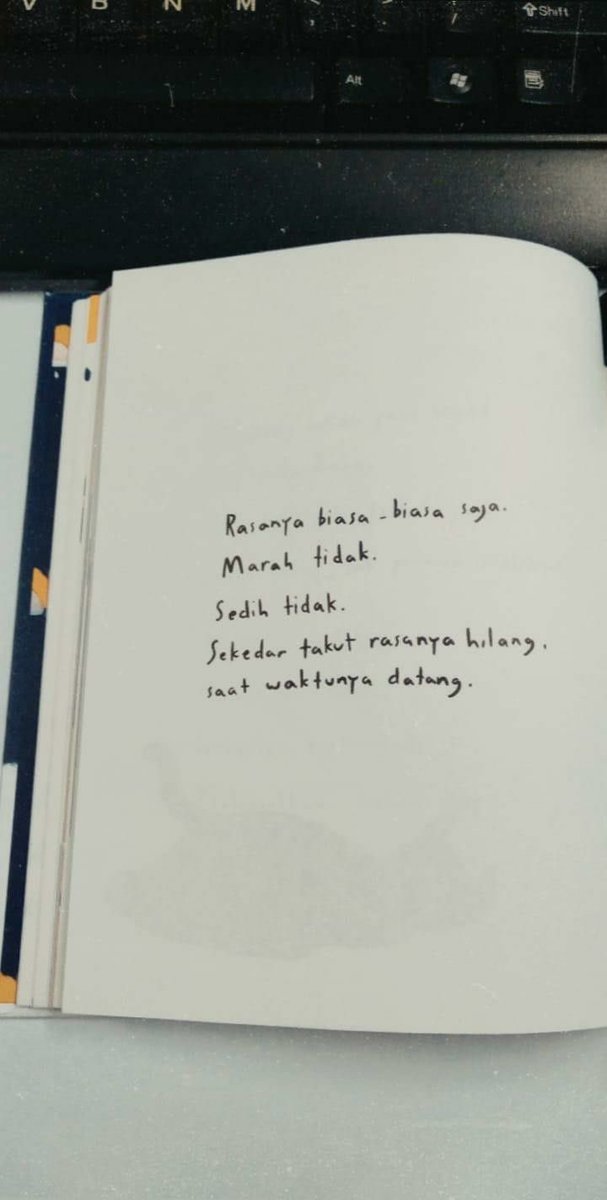 V B N M < > /
, . ⇧Shift
Alt
Rasanya biasa-biasa saja.
Marah tidak.
Sedih tidak.
Sekedar takut rasanya hilang,
saat waktunya datang.